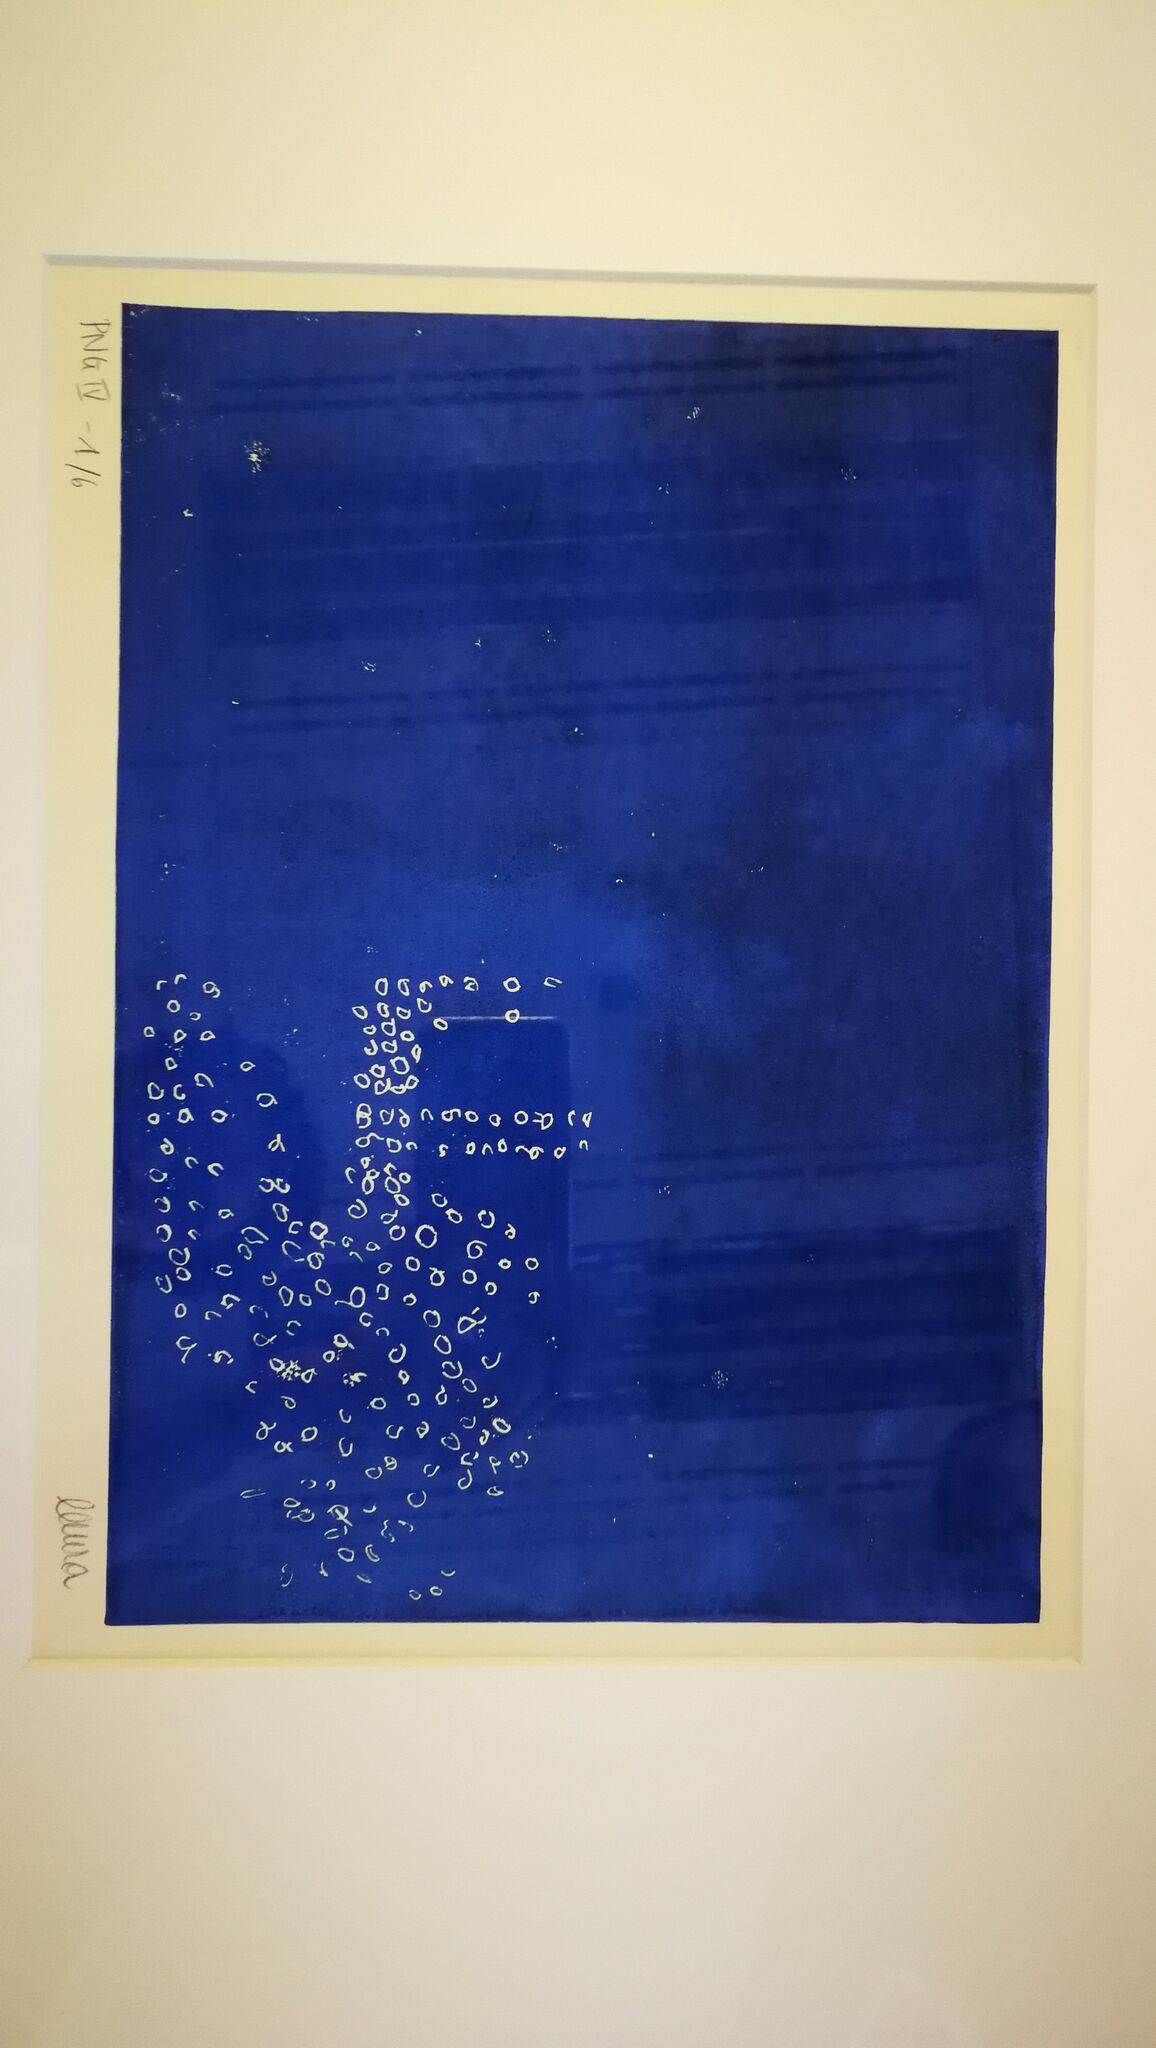 PNG IV - 1/6
laura